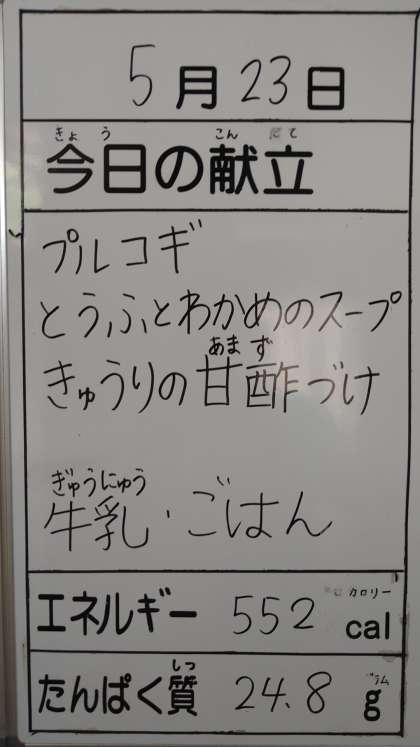 5月23日
きょう こんだて
今日の献立
プルコギ
とうふとわかめのスープ
あまず
きゅうりの甘酢づけ
ぎゅうにゅう
牛乳・ごはん
カロリー
エネルギー 552 cal
しつ グラム
たんぱく質 24.8 g